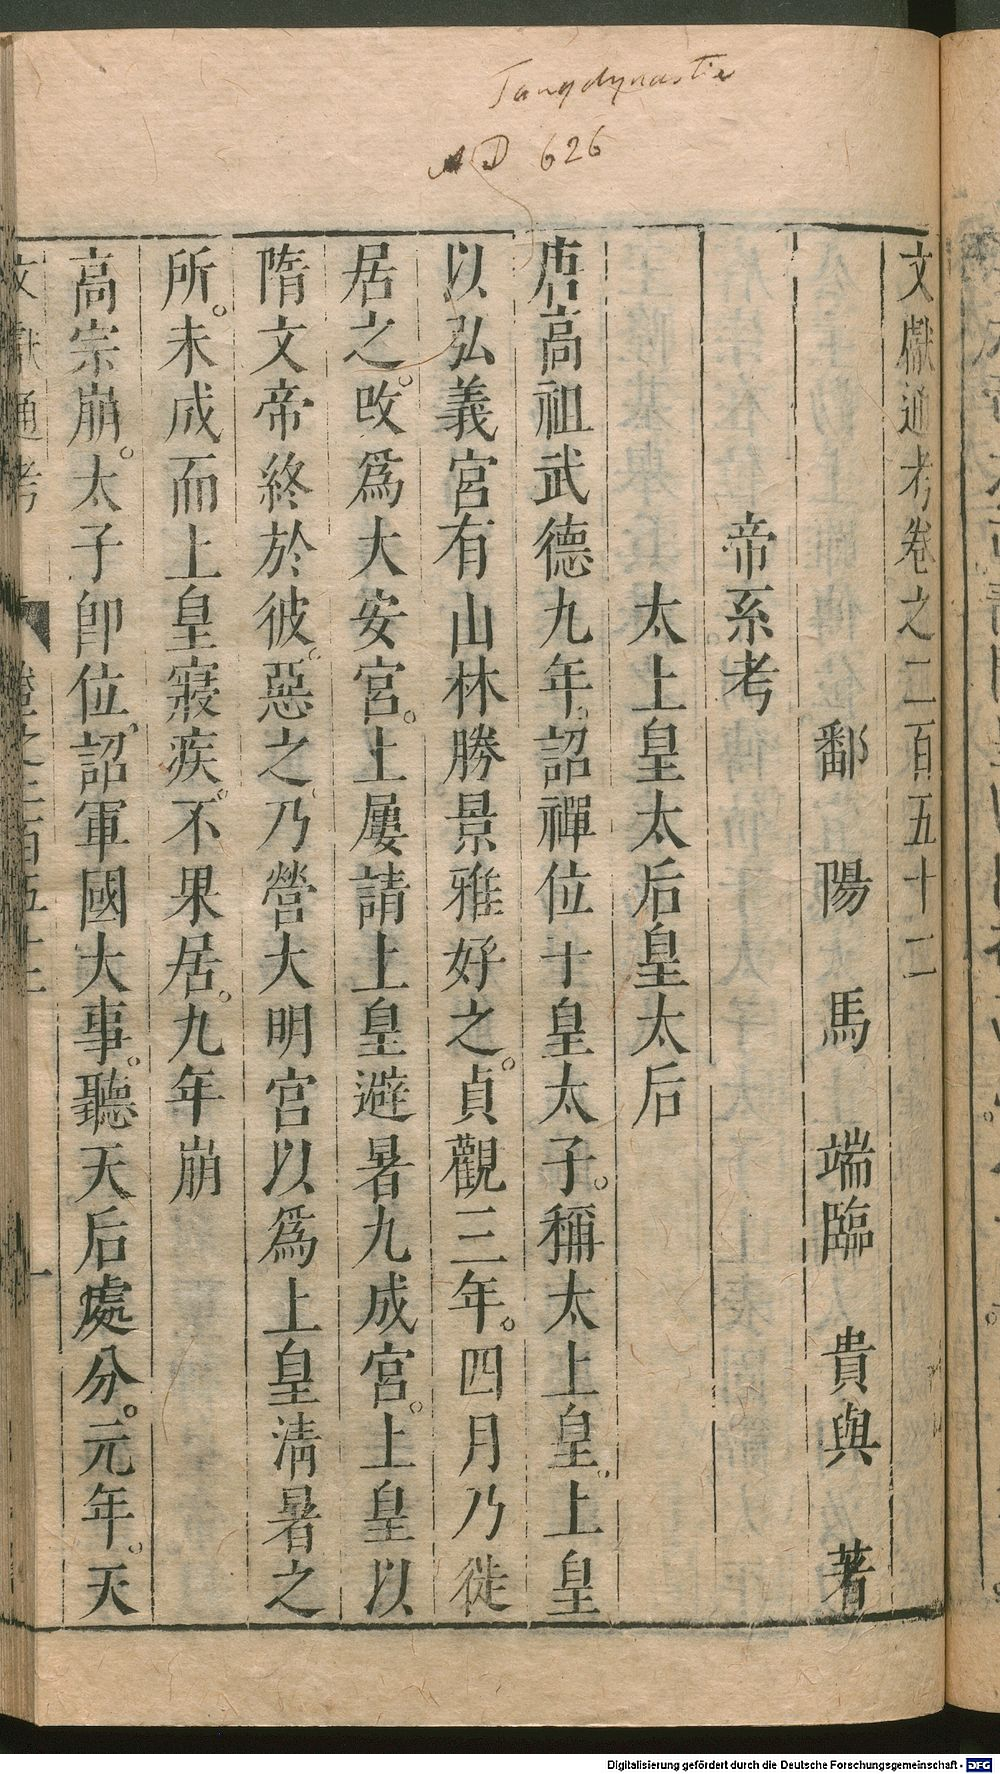 Tangdynastie
AD 626
文獻通考卷之二百五十二
鄱陽馬端臨貴與著
帝系考
太上皇太后皇太后
唐高祖武德九年。詔禪位于皇太子。稱太上皇。上皇
以弘義宮有山林勝景雅好之。貞觀三年。四月乃徙
居之。改爲大安宮。上屢請上皇避暑九成宮。上皇以
隋文帝終於彼。惡之。乃營大明宮以爲上皇清暑之
所。未成而上皇寢疾。不果居。九年崩
高宗崩。太子卽位。詔軍國大事。聽天后處分。元年。天
文獻通考 卷之二百五十二 一
Digitalisierung gefördert durch die Deutsche Forschungsgemeinschaft - DFG